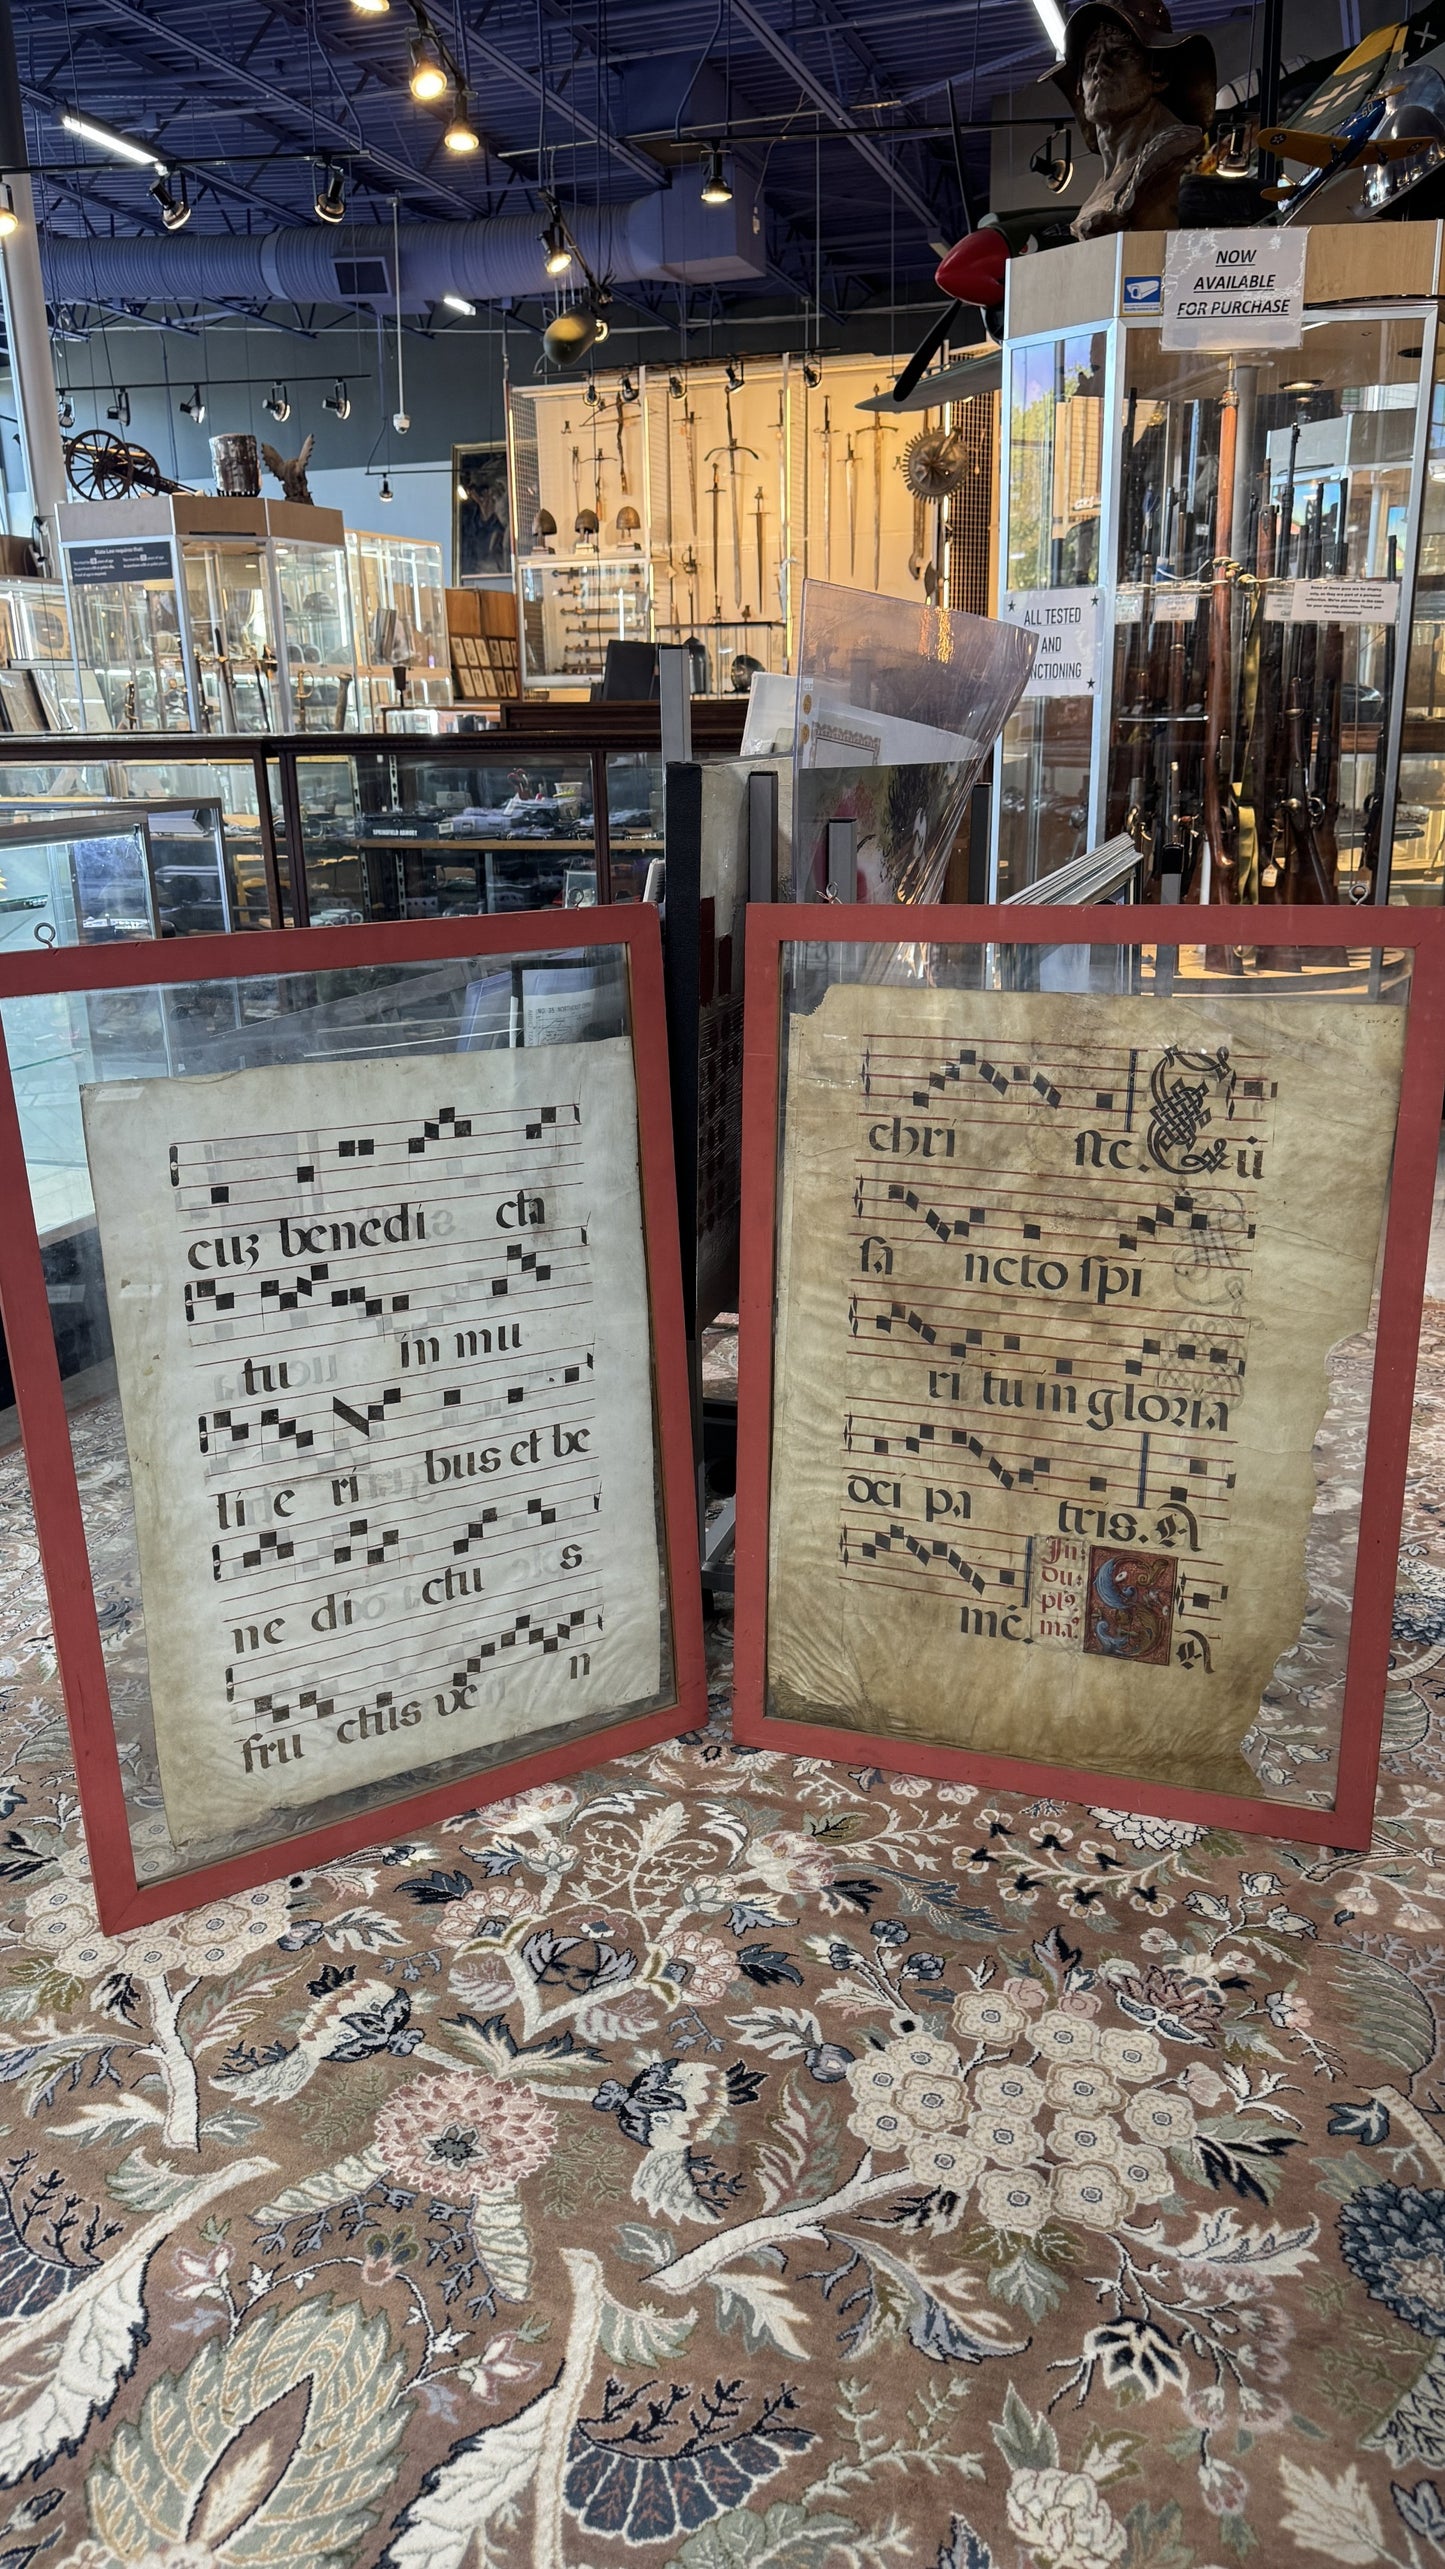 NOW
AVAILABLE
FOR PURCHASE
State Law requires that:
ALL TESTED
AND
NCTIONING
SPRINGFIELD ARMORY
cuʒ benedi cta
tu in mu
li e ri bus et be
ne di ctu s
fru ctus ve n
chri ste. Cu
sa ncto spi
ri tu in gloria
dei pa tris. A
mē. In du pl⁹ ma⁹ S A